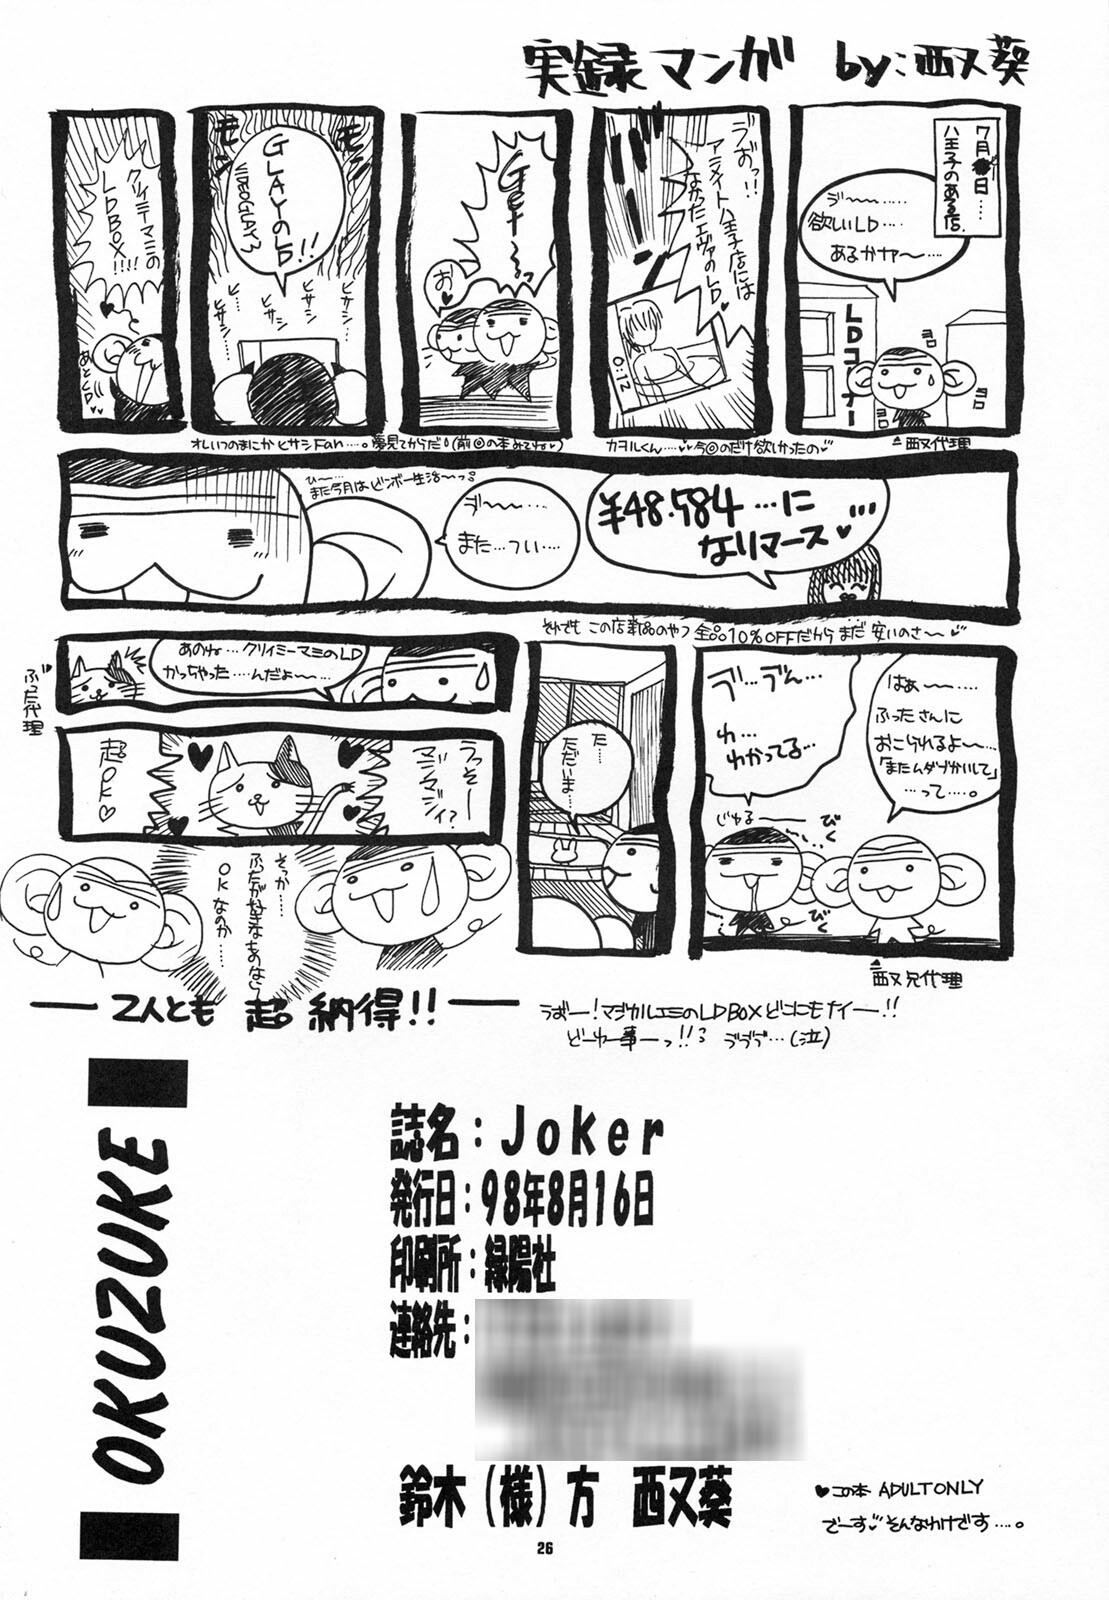 実録マンガ by:西又葵
7月●日…
八王子のある店.
ヴ〜〜……
欲しいLD…
あるかナァ〜…
LDコーナー
キョロ
キョロ
西又代理
ヴおっ!!
アニメイト八王子店には
なかったエヴァのLD♥
0:12
カヲルくん……♥今回のだけ欲しかったの
Get〜〜っ
お♥
GLAYのLD!!
VIDEO GLAY3
モン
モン
ヒサシ…
ヒサシ
ヒサシ
ヒサシ
オレいつのまにかヒサシFan……。夢見てからだ!(前回の本みてね♥)
クリィミーマミの
LDBOX!!!!
¥48.584…に
なりマース♥
ヴ〜〜…
また…つい…
ひ〜…
また今月はビンボー生活〜っ
それでも この店新品のやつ 全品10%OFFだから まだ安いのさ〜♥
はぁ〜〜…
ふったさんに
おこられるよ〜…
「またムダづかいして」
…って…。
ヴ…ヴん…
わ…
わかってる…
じゅる〜
びく
びく
西又兄代理
た…
ただいま…
あのね…クリィミーマミのLD
かっちゃった…んだよ〜…
ふった代理
うっそー
マジマジィ?
超OK♥
そっか……
ふたが好きなものなら
OKなのか…
―2人とも 超 納得!!―
うおー!マジカルエミのLDBOXどこにもナイー!!
どーゆー事ーっ!!? ヴヴヴ…(泣)
OKUZUKE
誌名：Joker
発行日：98年8月16日
印刷所：緑陽社
連絡先：
鈴木(様)方 西又葵
♥この本 ADULT ONLY
でーす♥そんなわけです…。
26